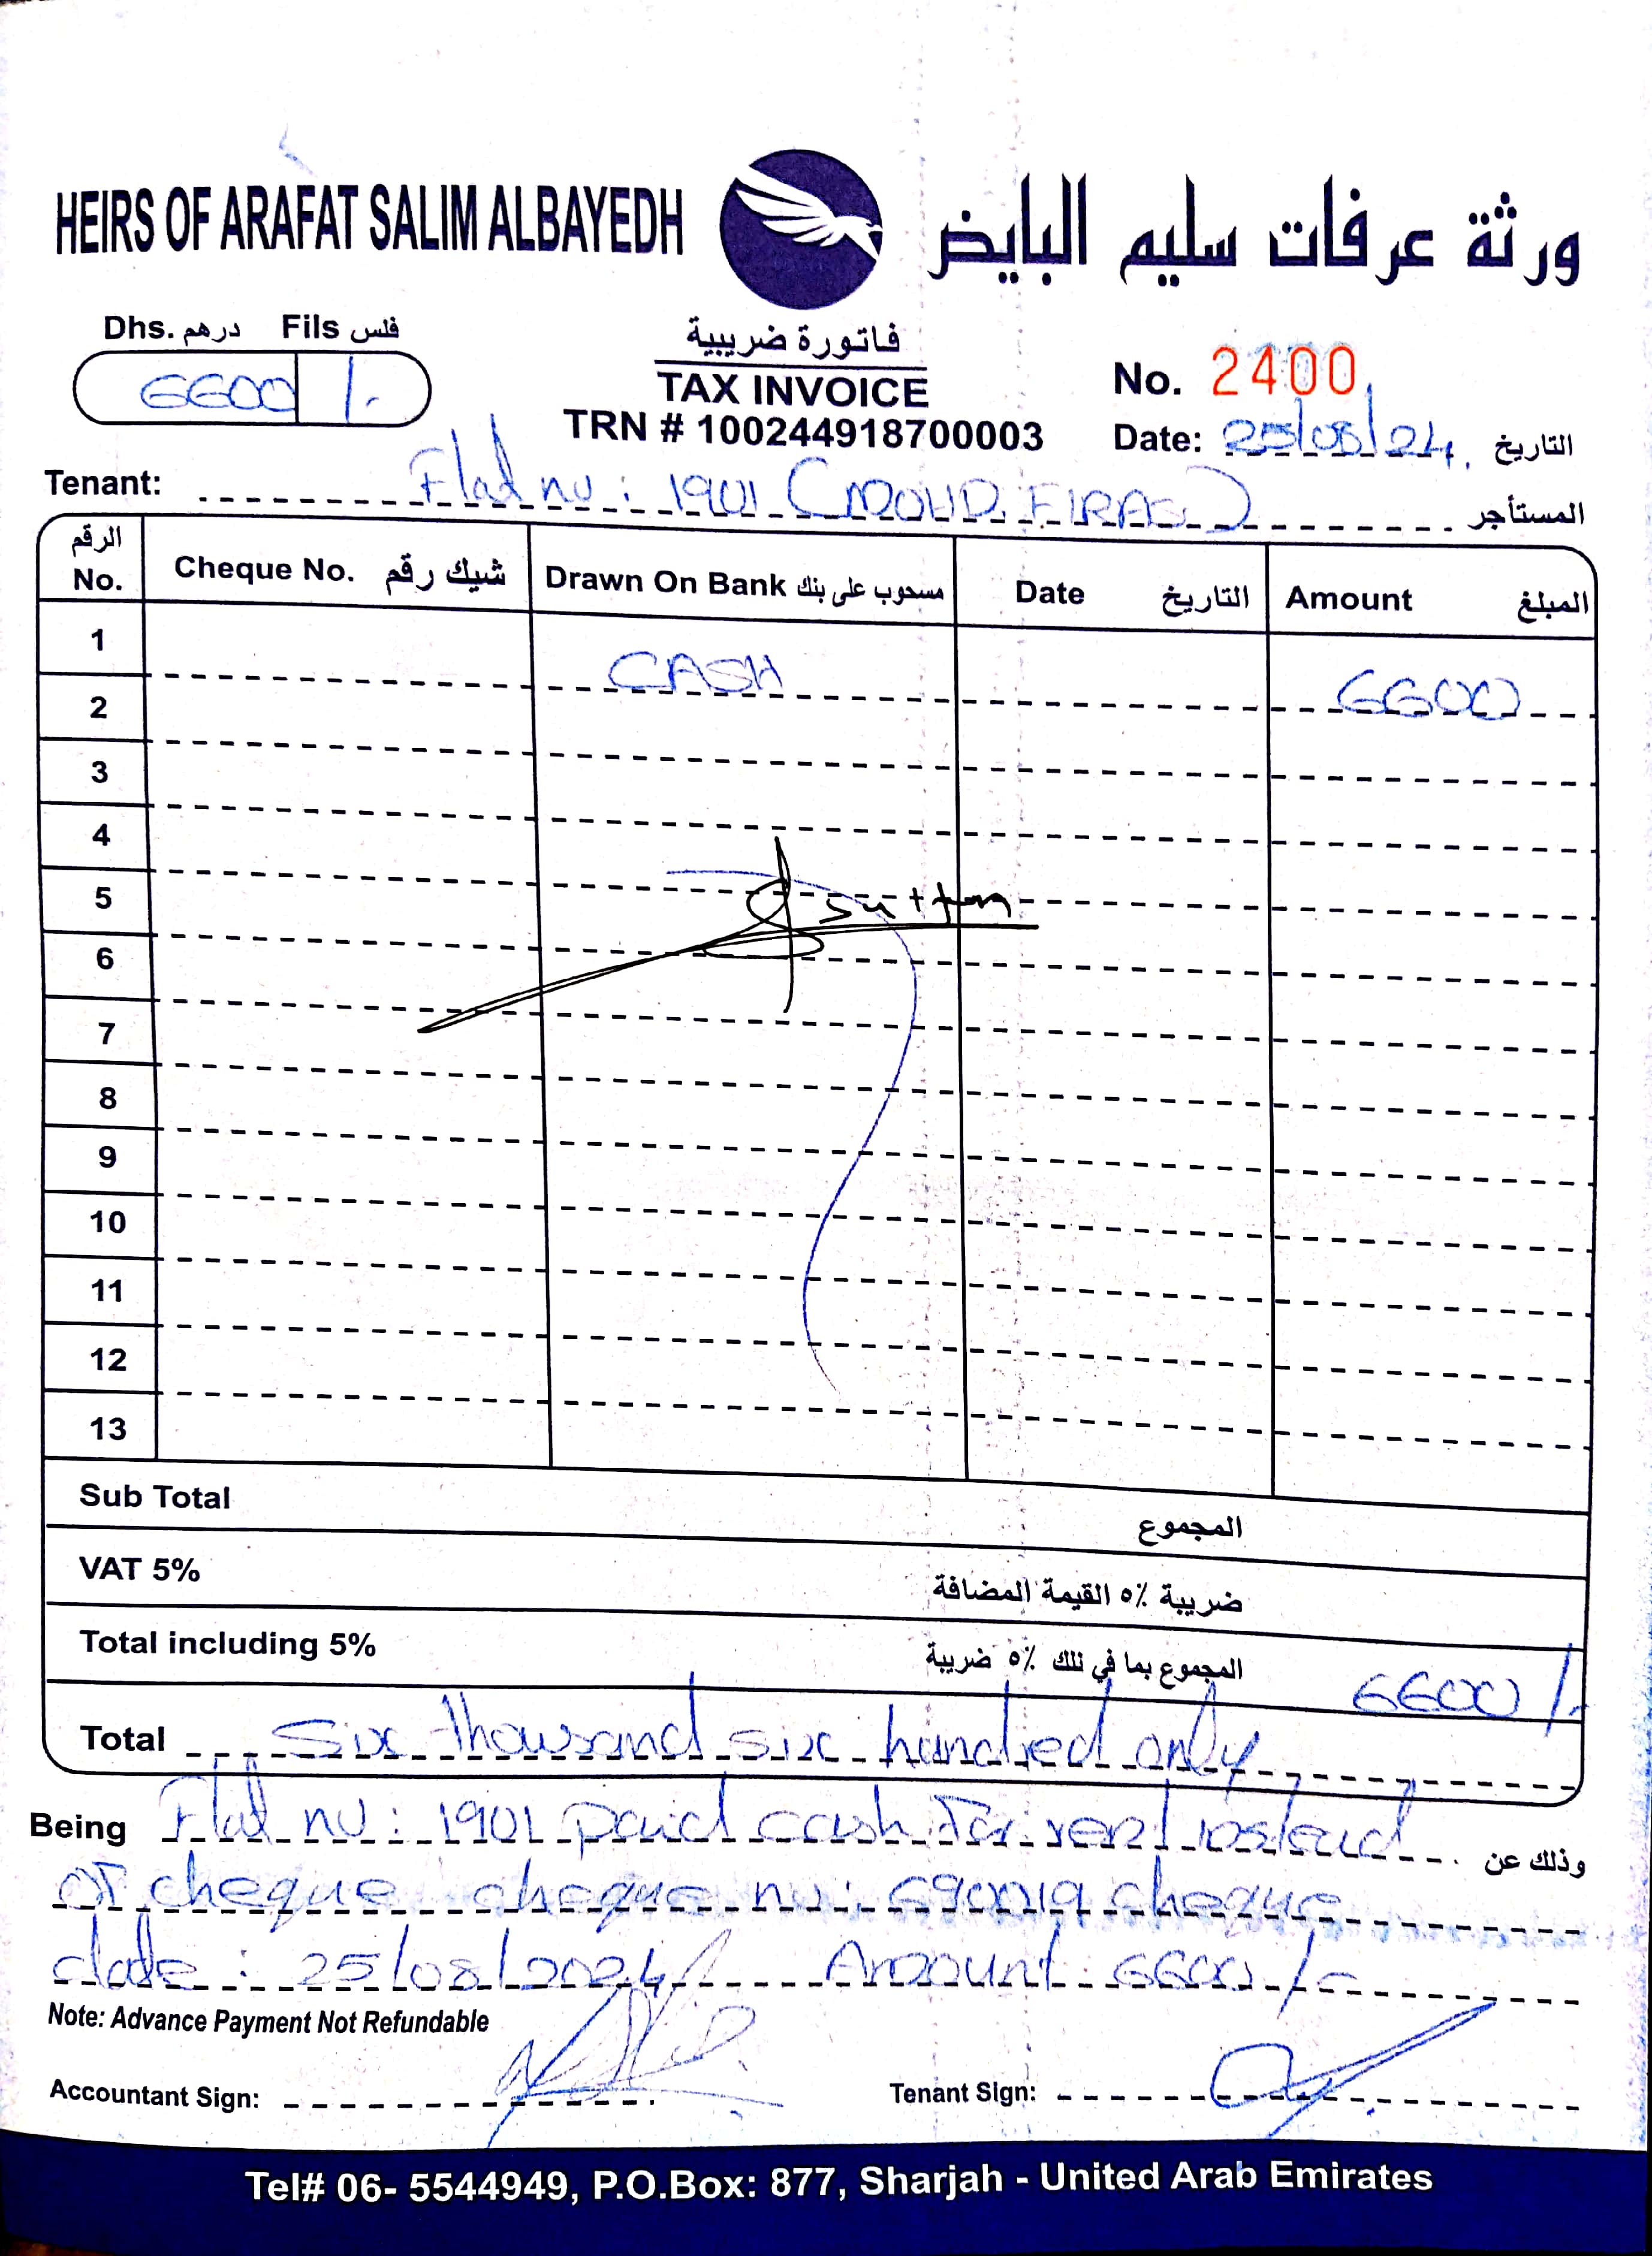 HEIRS OF ARAFAT SALIM ALBAYEDH ورثة عرفات سليم البايض
Dhs. درهم Fils فلس
6600 /-
فاتورة ضريبية
TAX INVOICE
TRN # 100244918700003
No. 2400
Date: 25/08/24 التاريخ
Tenant: Flat no: 1901 (MOHD FIRAS) المستأجر
الرقم No. Cheque No. شيك رقم Drawn On Bank مسحوب على بنك Date التاريخ Amount المبلغ
1 CASH 6600
2
3
4
5
6
7
8
9
10
11
12
13
Sub Total المجموع
VAT 5% ضريبة ٥٪ القيمة المضافة
Total including 5% المجموع بما في ذلك ٥٪ ضريبة 6600/-
Total Six thousand six hundred only
Being Flat no: 1901 paid cash for rent instead وذلك عن
of cheque cheque no: 690019 cheque
date: 25/08/2024 Amount: 6600/-
Note: Advance Payment Not Refundable
Accountant Sign: Tenant Sign:
Tel# 06- 5544949, P.O.Box: 877, Sharjah - United Arab Emirates